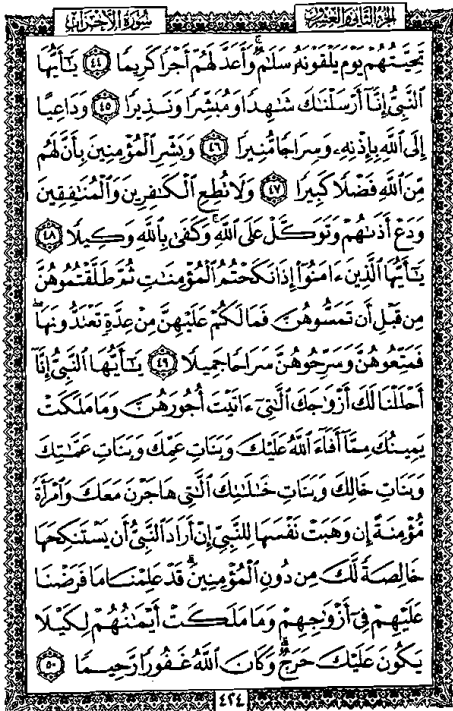 الجزء الثاني والعشرون سورة الأحزاب
تَحِيَّتُهُمْ يَوْمَ يَلْقَوْنَهُۥ سَلَٰمٌ ۚ وَأَعَدَّ لَهُمْ أَجْرًا كَرِيمًا ٤٤ يَٰٓأَيُّهَا
ٱلنَّبِىُّ إِنَّآ أَرْسَلْنَٰكَ شَٰهِدًا وَمُبَشِّرًا وَنَذِيرًا ٤٥ وَدَاعِيًا
إِلَى ٱللَّهِ بِإِذْنِهِۦ وَسِرَاجًا مُّنِيرًا ٤٦ وَبَشِّرِ ٱلْمُؤْمِنِينَ بِأَنَّ لَهُم
مِّنَ ٱللَّهِ فَضْلًا كَبِيرًا ٤٧ وَلَا تُطِعِ ٱلْكَٰفِرِينَ وَٱلْمُنَٰفِقِينَ
وَدَعْ أَذَىٰهُمْ وَتَوَكَّلْ عَلَى ٱللَّهِ ۚ وَكَفَىٰ بِٱللَّهِ وَكِيلًا ٤٨
يَٰٓأَيُّهَا ٱلَّذِينَ ءَامَنُوٓا۟ إِذَا نَكَحْتُمُ ٱلْمُؤْمِنَٰتِ ثُمَّ طَلَّقْتُمُوهُنَّ
مِن قَبْلِ أَن تَمَسُّوهُنَّ فَمَا لَكُمْ عَلَيْهِنَّ مِنْ عِدَّةٍ تَعْتَدُّونَهَا ۖ
فَمَتِّعُوهُنَّ وَسَرِّحُوهُنَّ سَرَاحًا جَمِيلًا ٤٩ يَٰٓأَيُّهَا ٱلنَّبِىُّ إِنَّآ
أَحْلَلْنَا لَكَ أَزْوَٰجَكَ ٱلَّٰتِىٓ ءَاتَيْتَ أُجُورَهُنَّ وَمَا مَلَكَتْ
يَمِينُكَ مِمَّآ أَفَآءَ ٱللَّهُ عَلَيْكَ وَبَنَاتِ عَمِّكَ وَبَنَاتِ عَمَّٰتِكَ
وَبَنَاتِ خَالِكَ وَبَنَاتِ خَٰلَٰتِكَ ٱلَّٰتِى هَاجَرْنَ مَعَكَ وَٱمْرَأَةً
مُّؤْمِنَةً إِن وَهَبَتْ نَفْسَهَا لِلنَّبِىِّ إِنْ أَرَادَ ٱلنَّبِىُّ أَن يَسْتَنكِحَهَا
خَالِصَةً لَّكَ مِن دُونِ ٱلْمُؤْمِنِينَ ۗ قَدْ عَلِمْنَا مَا فَرَضْنَا
عَلَيْهِمْ فِىٓ أَزْوَٰجِهِمْ وَمَا مَلَكَتْ أَيْمَٰنُهُمْ لِكَيْلَا
يَكُونَ عَلَيْكَ حَرَجٌ ۗ وَكَانَ ٱللَّهُ غَفُورًا رَّحِيمًا ٥٠
٤٢٤